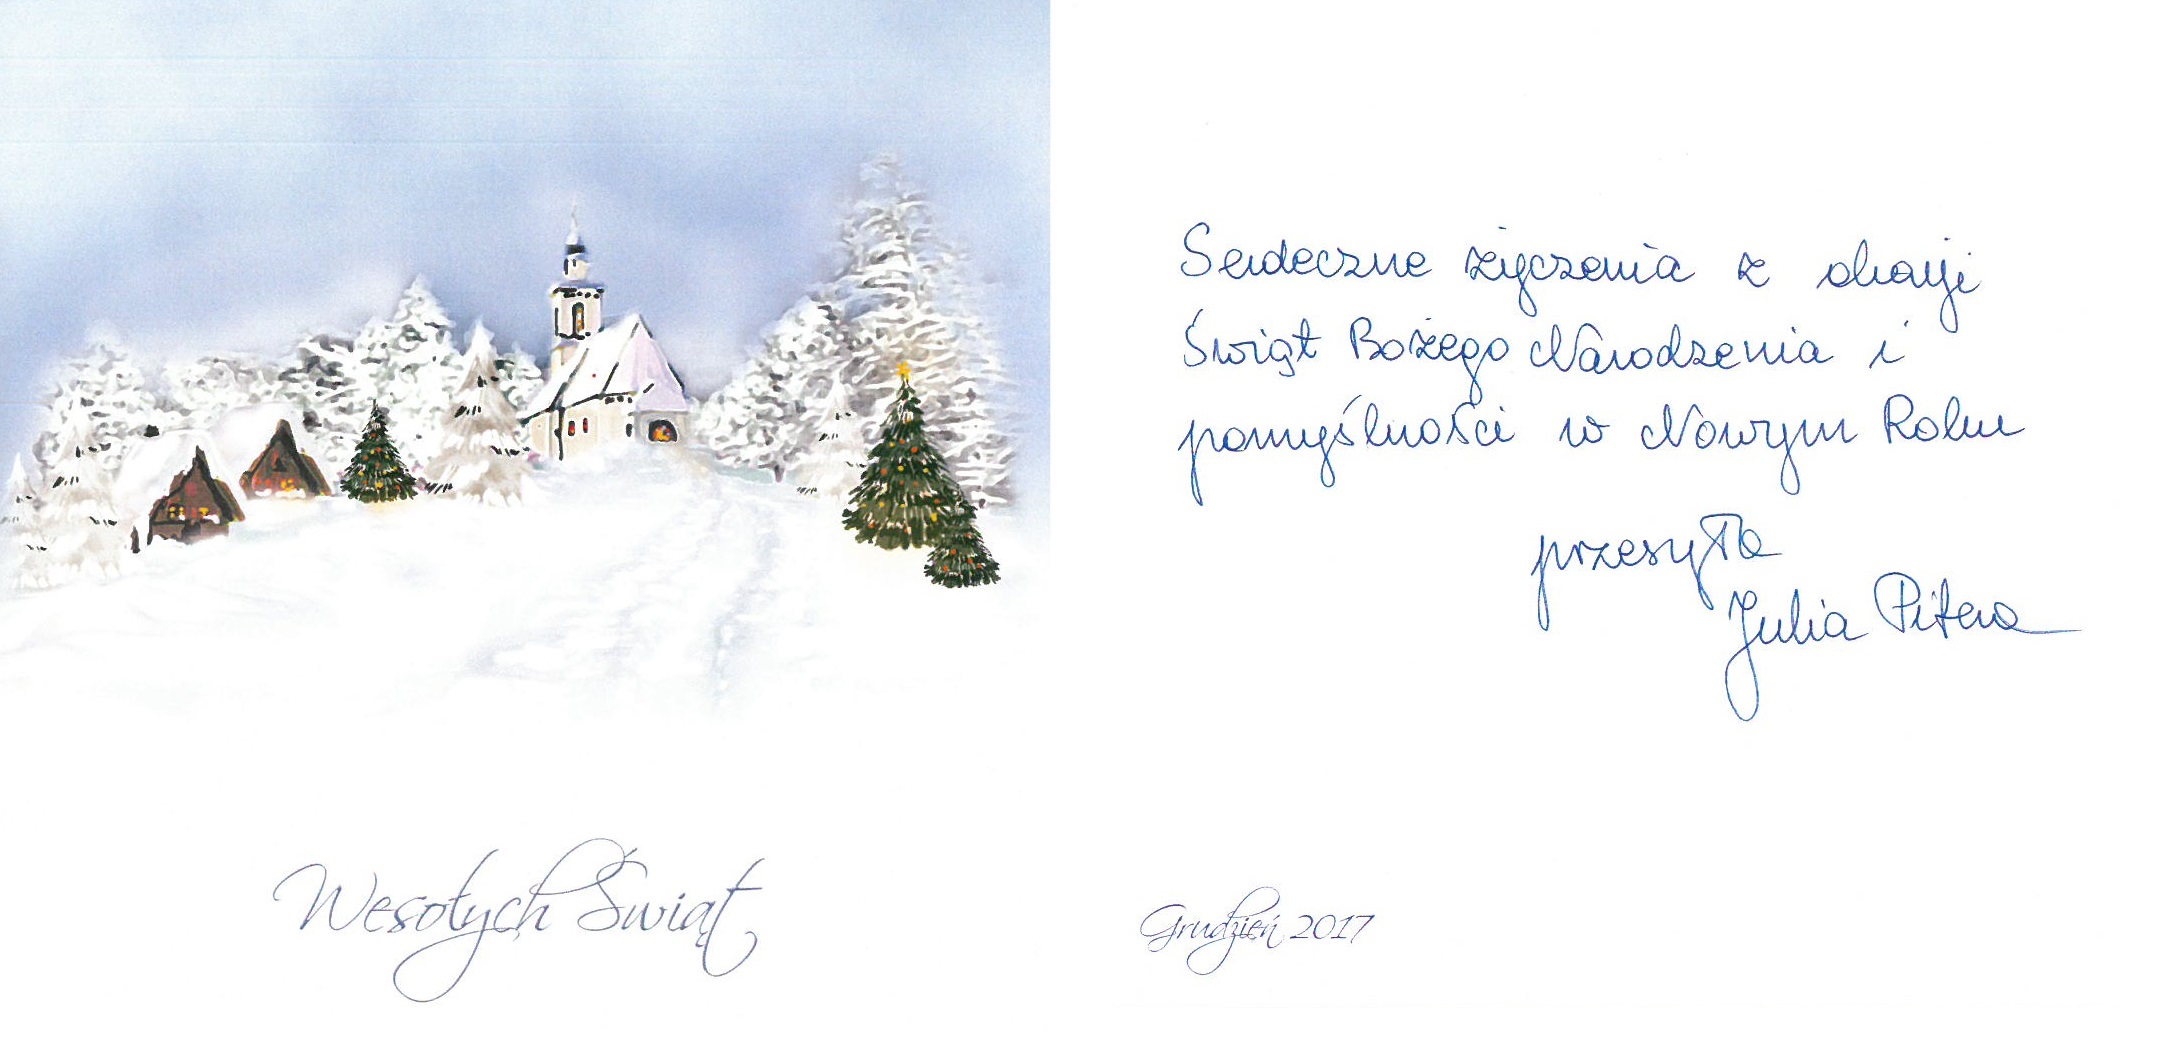 Wesołych Świąt
Serdeczne życzenia z okazji
Świąt Bożego Narodzenia i
pomyślności w Nowym Roku
przesyła
Julia Pitera
Grudzień 2017